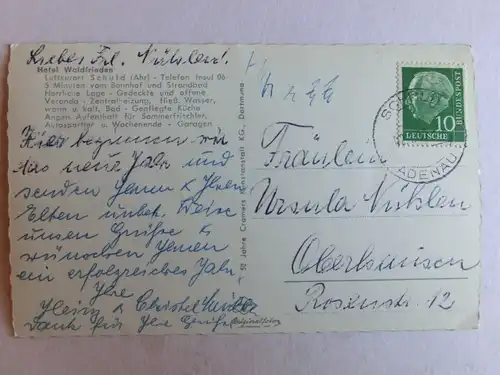 Liebes Frl. Nühlen!
Hotel Waldfrieden
Luftkurort Schuld (Ahr) - Telefon Insul 06
5 Minuten vom Bahnhof und Strandbad
Herrliche Lage - Gedeckte und offene
Veranda - Zentralheizung, fließ. Wasser,
warm u. kalt, Bad - Gepflegte Küche
Angen. Aufenthalt für Sommerfrischler,
Autosportler u. Wochenende - Garagen
Hier beginnen wir
das neue Jahr und
senden Ihnen & Ihren
Eltern unbek. Weise
unsere Grüße &
wünschen Ihnen
ein erfolgreiches Jahr
Ihre
Heinz & Christel
Dank für Ihre Grüße
Originalfoto
50 Jahre Cramers Kunstanstalt KG., Dortmund
SCHULD
ADENAU
10
DEUTSCHE
BUNDESPOST
Fräulein
Ursula Nühlen
Oberhausen
Rosenstr. 12